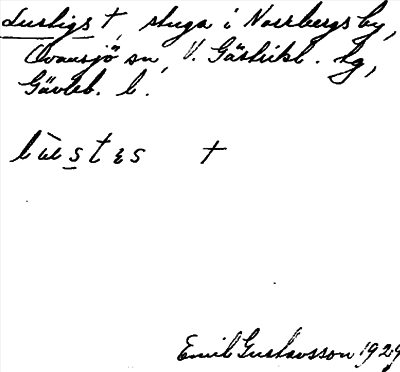 Lustigs †, stuga i Norrbergs by,
Ovansjö sn, V. Gästrikl. tg,
Gävleb. l.
†
Emil Gustavsson 1929